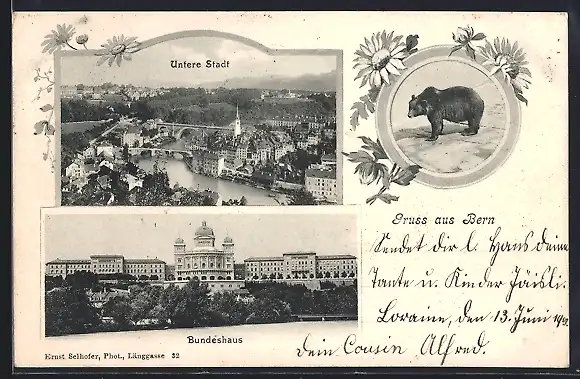 Untere Stadt
Gruss aus Bern
Sendet dir l. Hans deine
Tante u. Kinder Jäisli.
Loraine, den 13. Juni
dein Cousin Alfred.
Bundeshaus
Ernst Selhofer, Phot., Länggasse 32